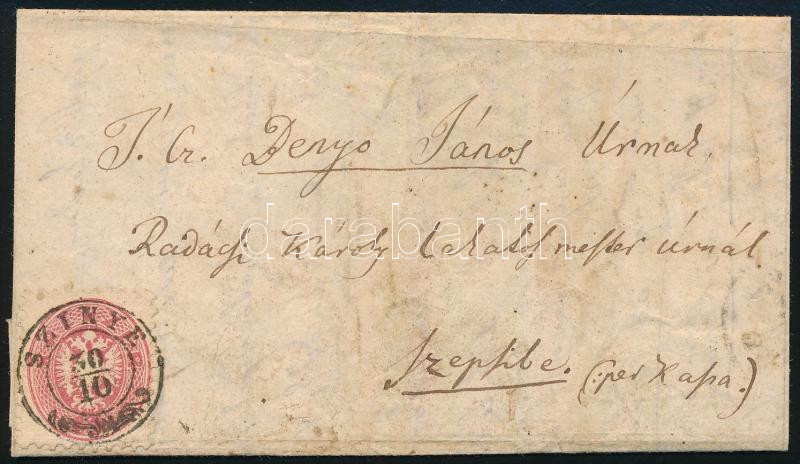 T. Cz. Denyo János Úrnak
Radácsi Károly Lakatos mester úrnál
Szepsibe. (: per Kassa.)
darabanth.com
SZINYE
30
10